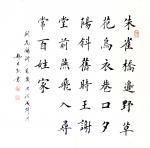 朱雀橋邊野草
花烏衣巷口夕
陽斜舊時王謝
堂前燕飛入尋
常百姓家